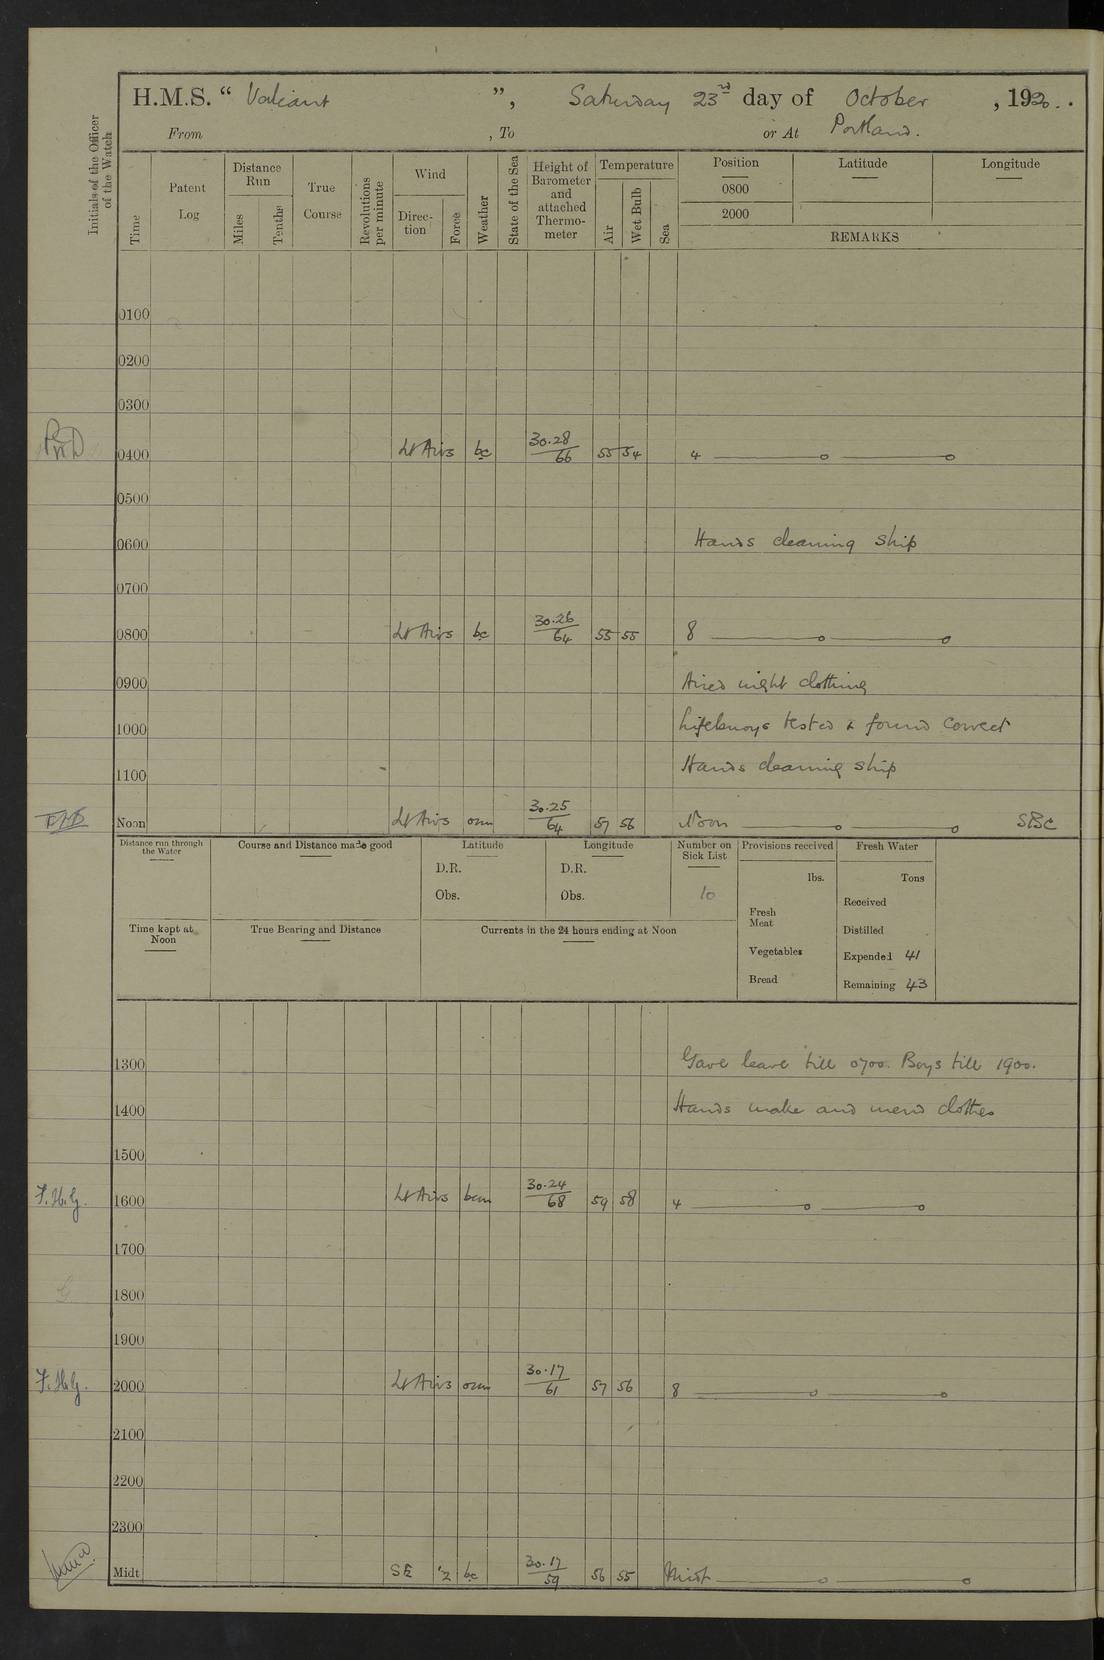 H.M.S. “ Valiant ”, Saturday 23rd day of October , 1920.
From , To or At Portland.
Initials of the Officer of the Watch
Time
Patent Log
Distance Run
Miles
Tenths
True Course
Revolutions per minute
Wind
Direc-tion
Force
Weather
State of the Sea
Height of Barometer and attached Thermo-meter
Temperature
Air
Wet Bulb
Sea
Position
0800
2000
Latitude
Longitude
REMARKS
0100
0200
0300
0400 Lt Airs bc 30.28/66 55 54 4
0500
0600 Hands cleaning ship
0700
0800 Lt Airs bc 30.26/64 55 55 8
0900 Aired night clothing
1000 Lifebuoys tested & found correct
1100 Hands cleaning ship
Noon Lt Airs om 30.25/64 57 56 Noon SBC
Distance run through the Water
Course and Distance made good
Latitude
D.R.
Obs.
Longitude
D.R.
Obs.
Number on Sick List
10
Provisions received
lbs.
Fresh Meat
Vegetables
Bread
Fresh Water
Tons
Received
Distilled
Expended 41
Remaining 43
Time kept at Noon
True Bearing and Distance
Currents in the 24 hours ending at Noon
1300 Gave leave till 0700. Boys till 1900.
1400 Hands make and mend clothes
1500
F.H.G. 1600 Lt Airs bcm 30.24/68 59 58 4
1700
1800
1900
F.H.G. 2000 Lt Airs om 30.17/61 57 56 8
2100
2200
2300
Midt SE 2 bc 30.17/59 56 55 Midt